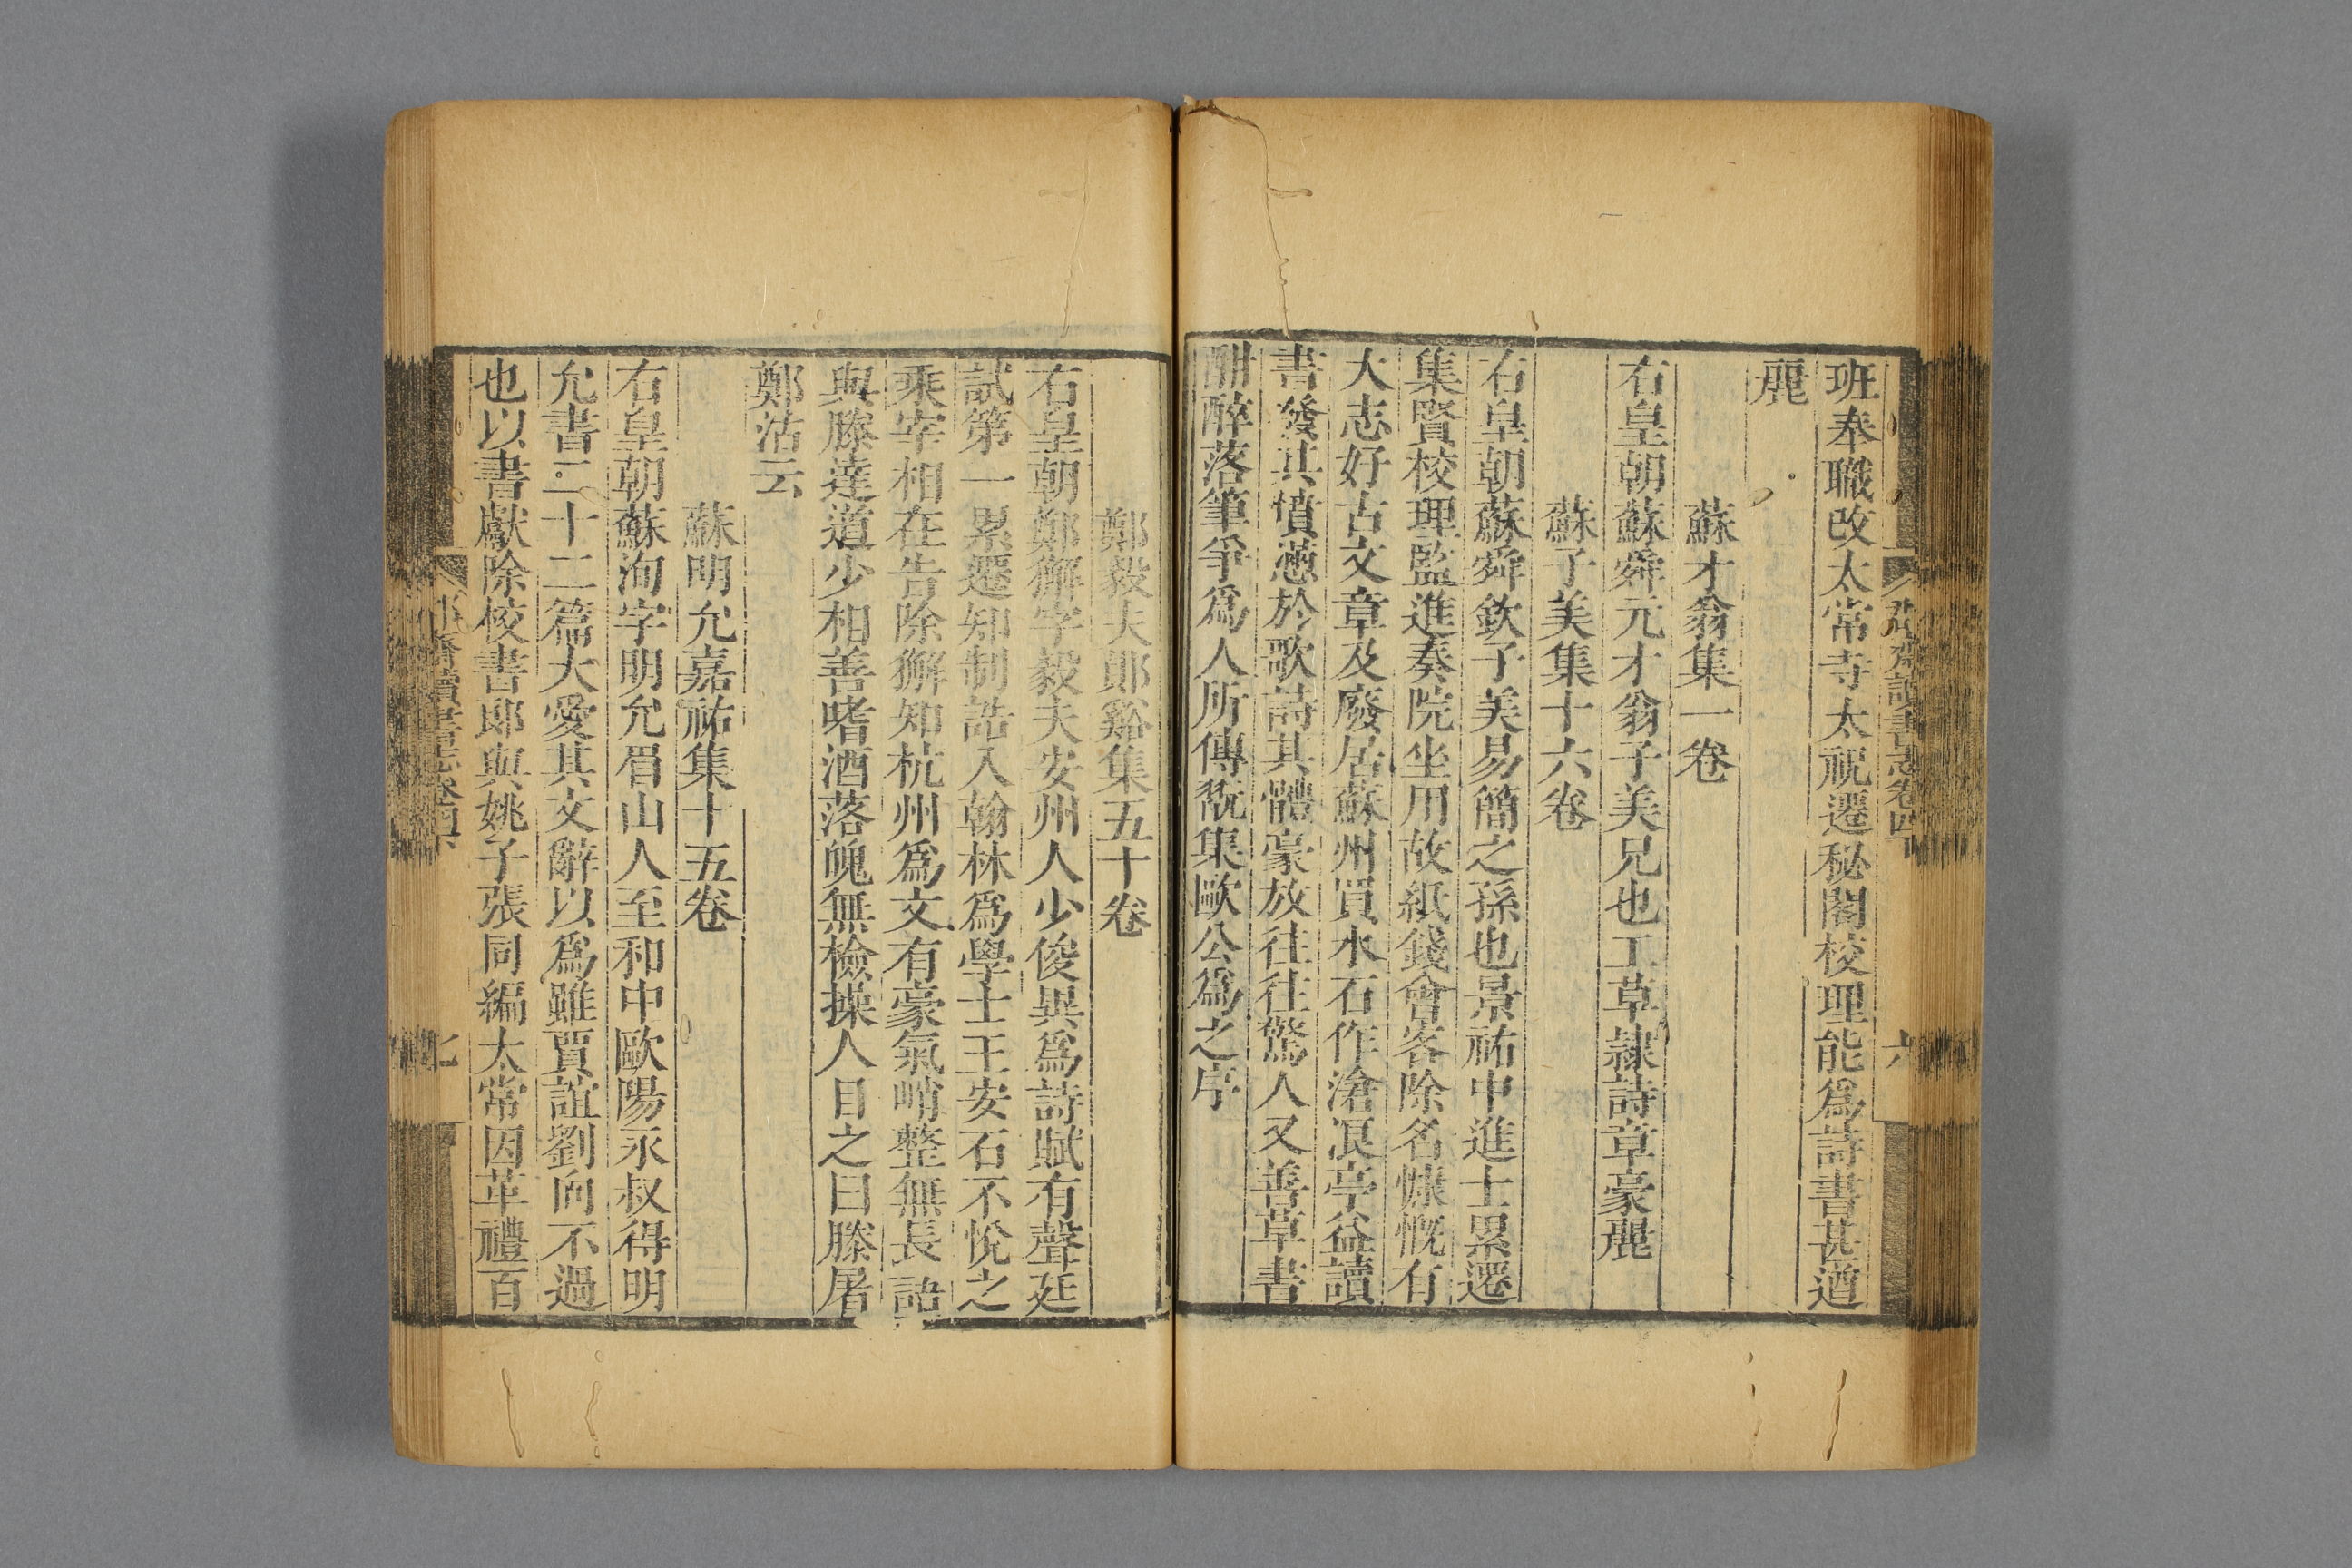 班奉職改太常寺太祝遷秘閣校理能爲詩書甚遒
麗
蘇才翁集一卷
右皇朝蘇舜元才翁子美兄也工草隷詩章豪麗
蘇子美集十六卷
右皇朝蘇舜欽子美易簡之孫也景祐中進士累遷
集賢校理監進奏院坐用故紙錢會客除名慷慨有
大志好古文章及廢居蘇州買水石作滄浪亭益讀
書發其憤懣於歌詩其體豪放往往驚人又善草書
酣醉落筆爭爲人所傳翫集歐公爲之序
鄭毅夫鄖谿集五十卷
右皇朝鄭獬字毅夫安州人少俊異爲詩賦有聲廷
試第一累遷知制誥入翰林爲學士王安石不悅之
乘宰相在告除獬知杭州爲文有豪氣峭整無長語
與滕達道少相善嗜酒落魄無檢操人目之曰滕屠
鄭沽云
蘇明允嘉祐集十五卷
右皇朝蘇洵字明允眉山人至和中歐陽永叔得明
允書二十二篇大愛其文辭以爲雖賈誼劉向不過
也以書獻除校書郎與姚子張同編太常因革禮百